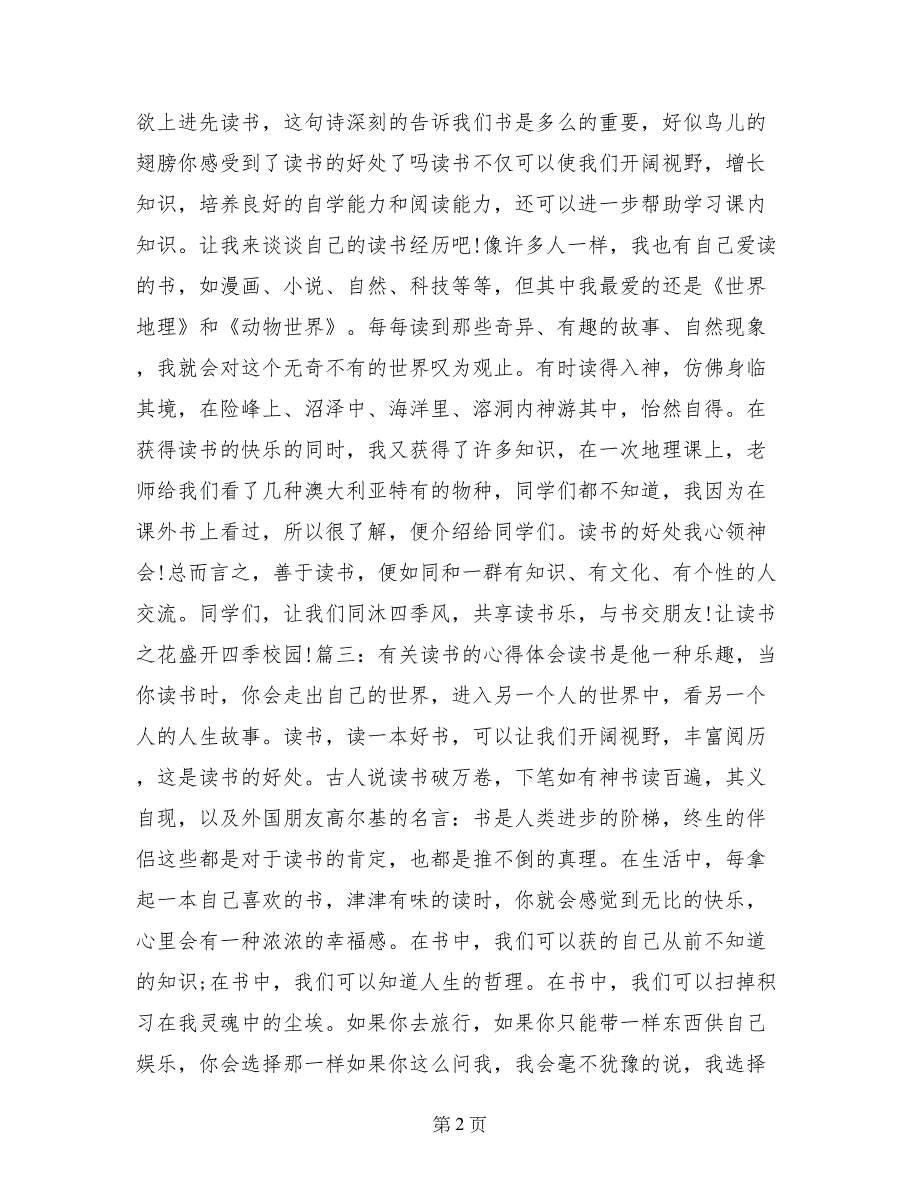 欲上进先读书，这句诗深刻的告诉我们书是多么的重要，好似鸟儿的
翅膀你感受到了读书的好处了吗读书不仅可以使我们开阔视野，增长
知识，培养良好的自学能力和阅读能力，还可以进一步帮助学习课内
知识。让我来谈谈自己的读书经历吧!像许多人一样，我也有自己爱读
的书，如漫画、小说、自然、科技等等，但其中我最爱的还是《世界
地理》和《动物世界》。每每读到那些奇异、有趣的故事、自然现象
，我就会对这个无奇不有的世界叹为观止。有时读得入神，仿佛身临
其境，在险峰上、沼泽中、海洋里、溶洞内神游其中，怡然自得。在
获得读书的快乐的同时，我又获得了许多知识，在一次地理课上，老
师给我们看了几种澳大利亚特有的物种，同学们都不知道，我因为在
课外书上看过，所以很了解，便介绍给同学们。读书的好处我心领神
会!总而言之，善于读书，便如同和一群有知识、有文化、有个性的人
交流。同学们，让我们同沐四季风，共享读书乐，与书交朋友!让读书
之花盛开四季校园!篇三：有关读书的心得体会读书是他一种乐趣，当
你读书时，你会走出自己的世界，进入另一个人的世界中，看另一个
人的人生故事。读书，读一本好书，可以让我们开阔视野，丰富阅历
，这是读书的好处。古人说读书破万卷，下笔如有神书读百遍，其义
自现，以及外国朋友高尔基的名言：书是人类进步的阶梯，终生的伴
侣这些都是对于读书的肯定，也都是推不倒的真理。在生活中，每拿
起一本自己喜欢的书，津津有味的读时，你就会感觉到无比的快乐，
心里会有一种浓浓的幸福感。在书中，我们可以获的自己从前不知道
的知识;在书中，我们可以知道人生的哲理。在书中，我们可以扫掉积
习在我灵魂中的尘埃。如果你去旅行，如果你只能带一样东西供自己
娱乐，你会选择那一样如果你这么问我，我会毫不犹豫的说，我选择
第 2 页